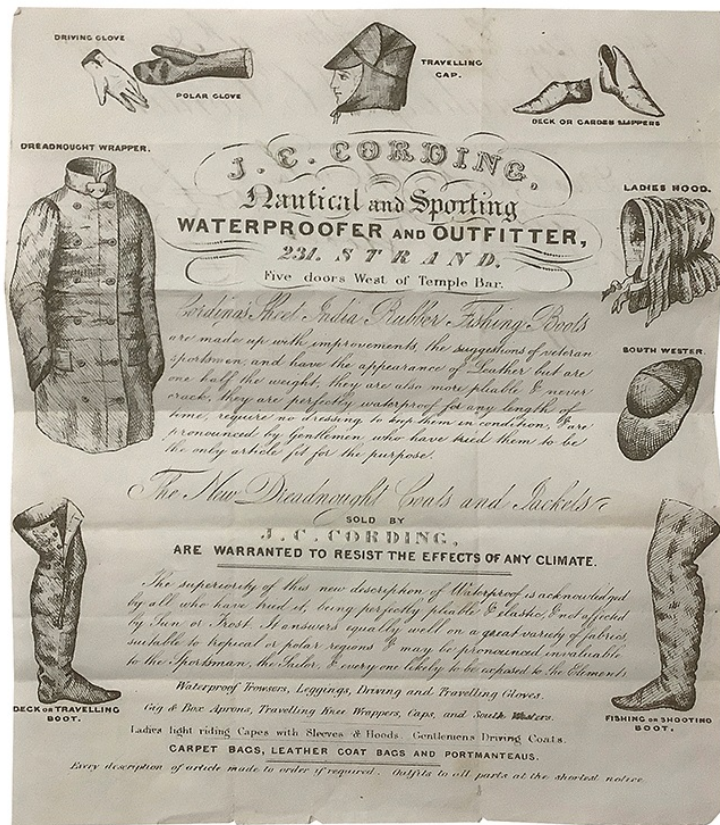 DRIVING GLOVE
POLAR GLOVE
TRAVELLING
CAP.
DECK OR GARDEN SLIPPERS
DREADNOUGHT WRAPPER.
LADIES HOOD.
J. C. CORDING,
Nautical and Sporting
WATERPROOFER AND OUTFITTER,
231. STRAND.
Five doors West of Temple Bar.
Cording's Sheet India Rubber Fishing Boots
are made up with improvements, the suggestions of veteran
sportsmen, and have the appearance of Leather but are
one half the weight, they are also more pliable & never
crack, they are perfectly waterproof for any length of
time, require no dressing to keep them in condition, & are
pronounced by Gentlemen who have tried them to be
the only article fit for the purpose.
SOUTH WESTER.
The New Dreadnought Coats and Jackets
SOLD BY
J. C. CORDING,
ARE WARRANTED TO RESIST THE EFFECTS OF ANY CLIMATE.
The superiority of this new description of Waterproof is acknowledged
by all who have tried it, being perfectly pliable & elastic, & not affected
by Sun or Frost. It answers equally well on a great variety of fabrics,
suitable to tropical or polar regions & may be pronounced invaluable
to the Sportsman, the Sailor, & every one likely to be exposed to the Elements
DECK OR TRAVELLING
BOOT.
FISHING OR SHOOTING
BOOT.
Waterproof Trowsers, Leggings, Driving and Travelling Gloves.
Gig & Box Aprons, Travelling Knee Wrappers, Caps, and South Westers.
Ladies light riding Capes with Sleeves & Hoods. Gentlemens Driving Coats.
CARPET BAGS, LEATHER COAT BAGS AND PORTMANTEAUS.
Every description of article made to order if required. Outfits to all parts at the shortest notice